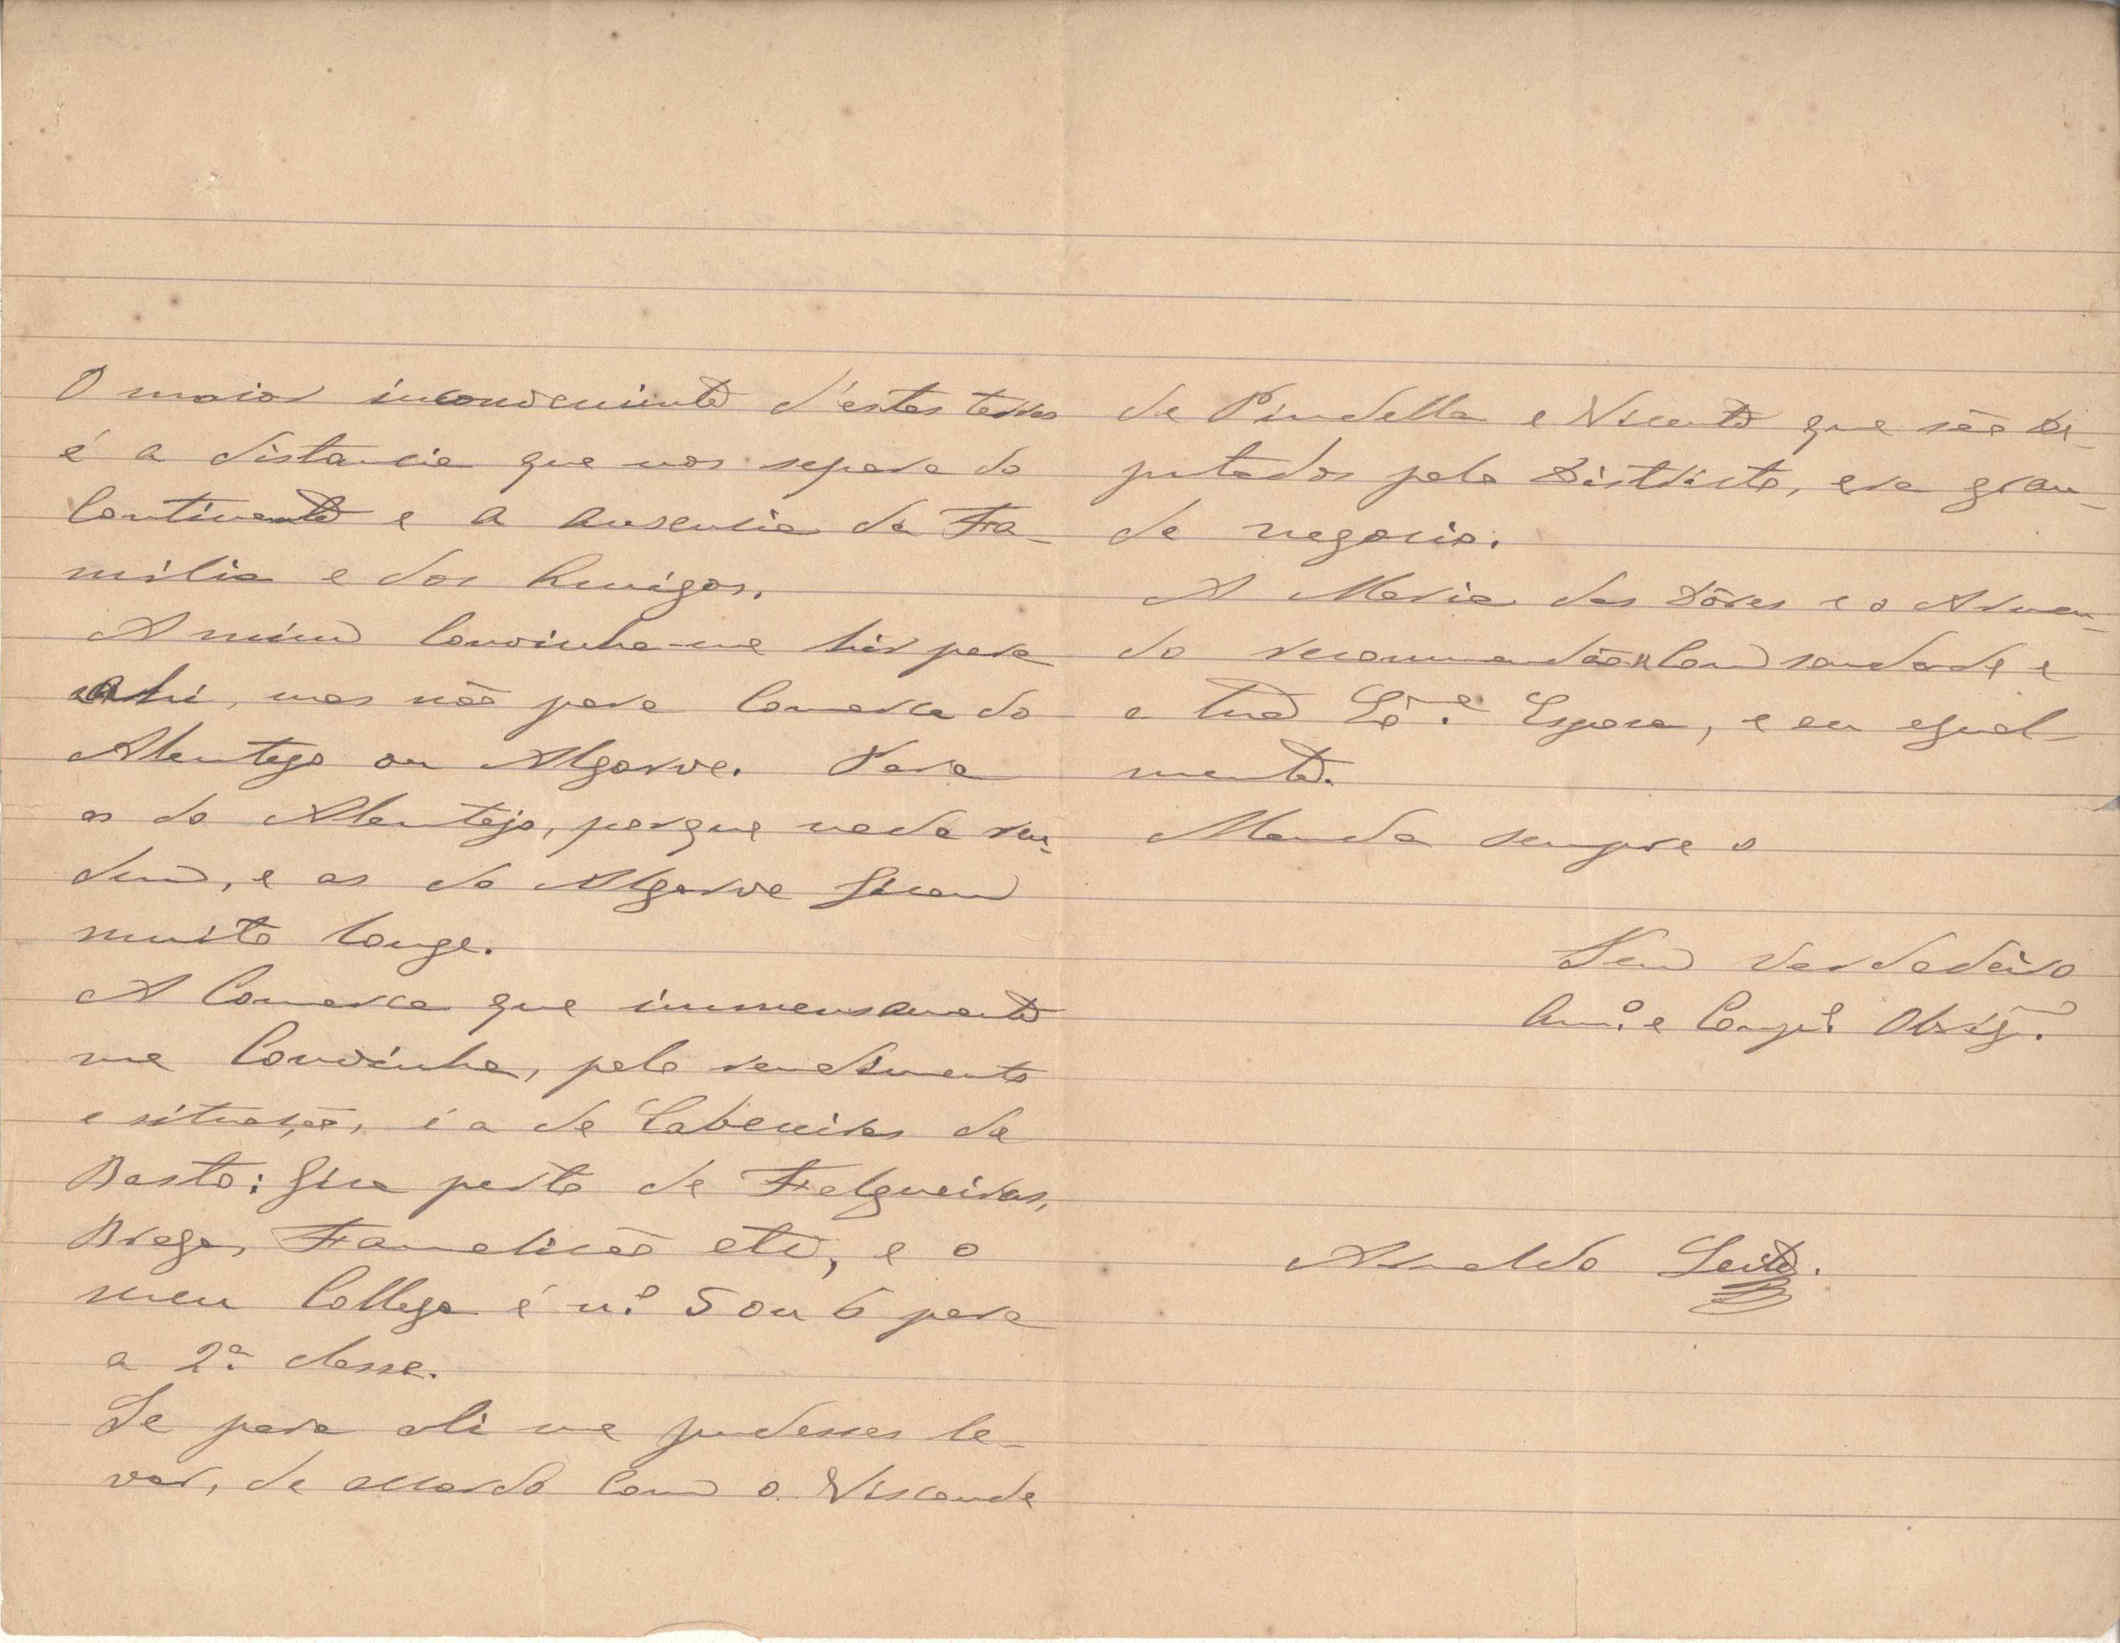 O maior inconveniente d'estas terras
é a distancia que nos separa do
Continente e a ausencia da Fa-
milia e dos Amigos.
A mim convinha-me hir para
ahi, mas não para Comarca do
Alemtejo ou Algarve. Para
as do Alemtejo, porque nada ren-
dem, e as do Algarve ficam
muito longe.
A Comarca que immensamente
me Convinha, pelo rendimento
e situação, é a de Cabeceiras de
Basto: fica perto de Felgueiras,
Braga, Famelicão etc, e o
meu Collega é n.º 5 ou 6 para
a 2.ª classe.
Se para ali me pudesses le-
var, de accordo com o Visconde
de Pindella e Vicente que são De-
putados pelo Districto, era gran-
de negocio.
A Maria das Dôres e o Arman-
do recommendão-se com saudade e
a tua Esposa, e eu egual-
mente.
Manda sempre o
Teu verdadeiro
Am.º e Comp.e Obrig.
Arnaldo Leite.